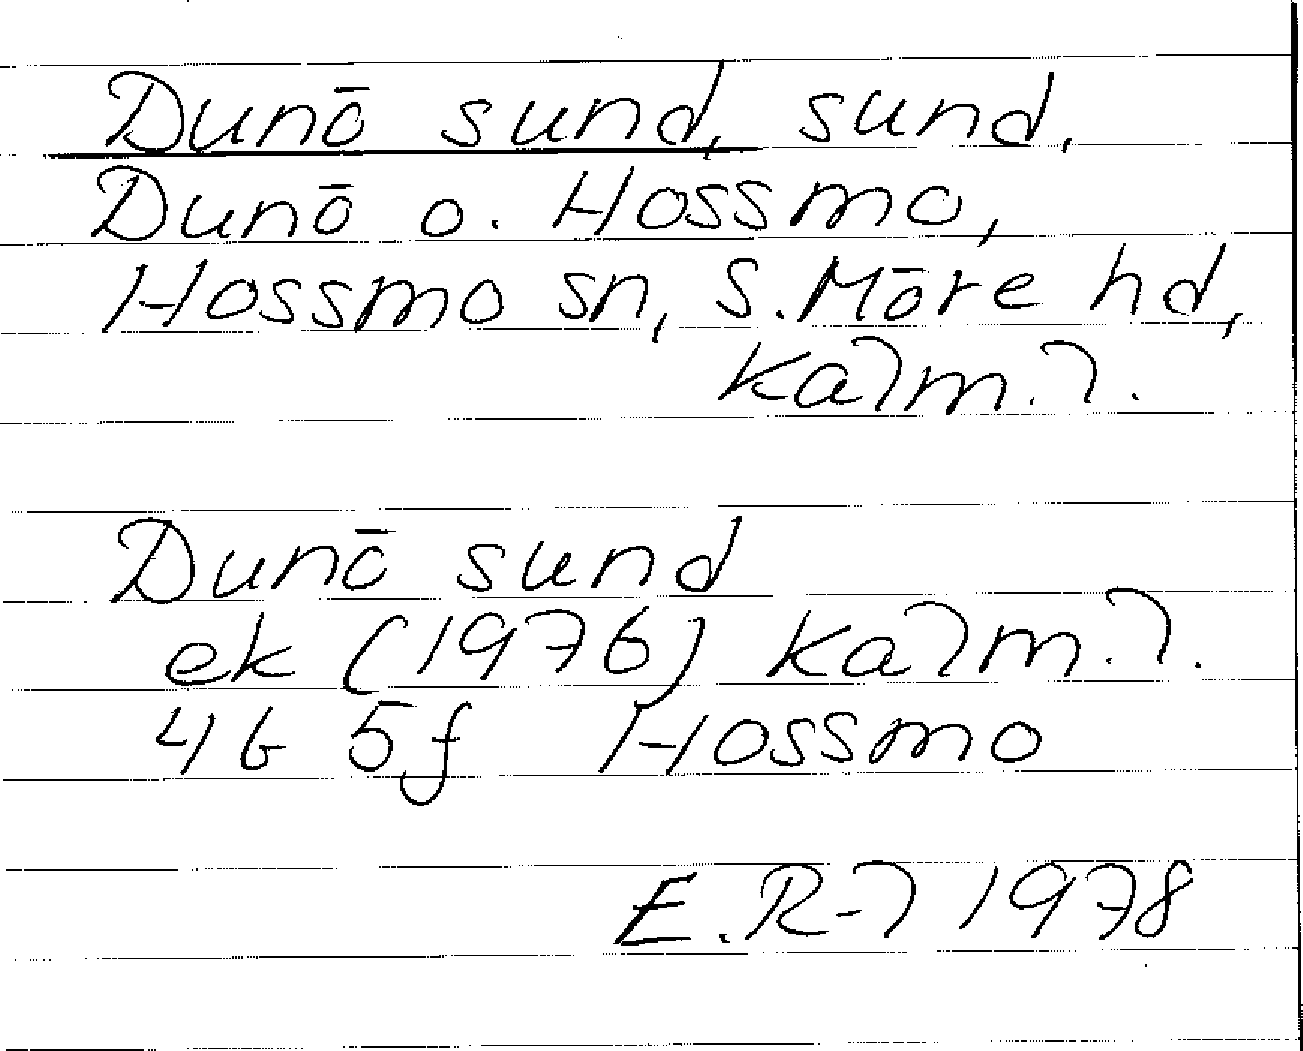 Dunö sund, sund,
Dunö o. Hossmo,
Hossmo sn, S. Möre hd,
Kalm. l.
Dunö sund
ek (1976) Kalm. l.
4G 5f Hossmo
E. R-l 1978